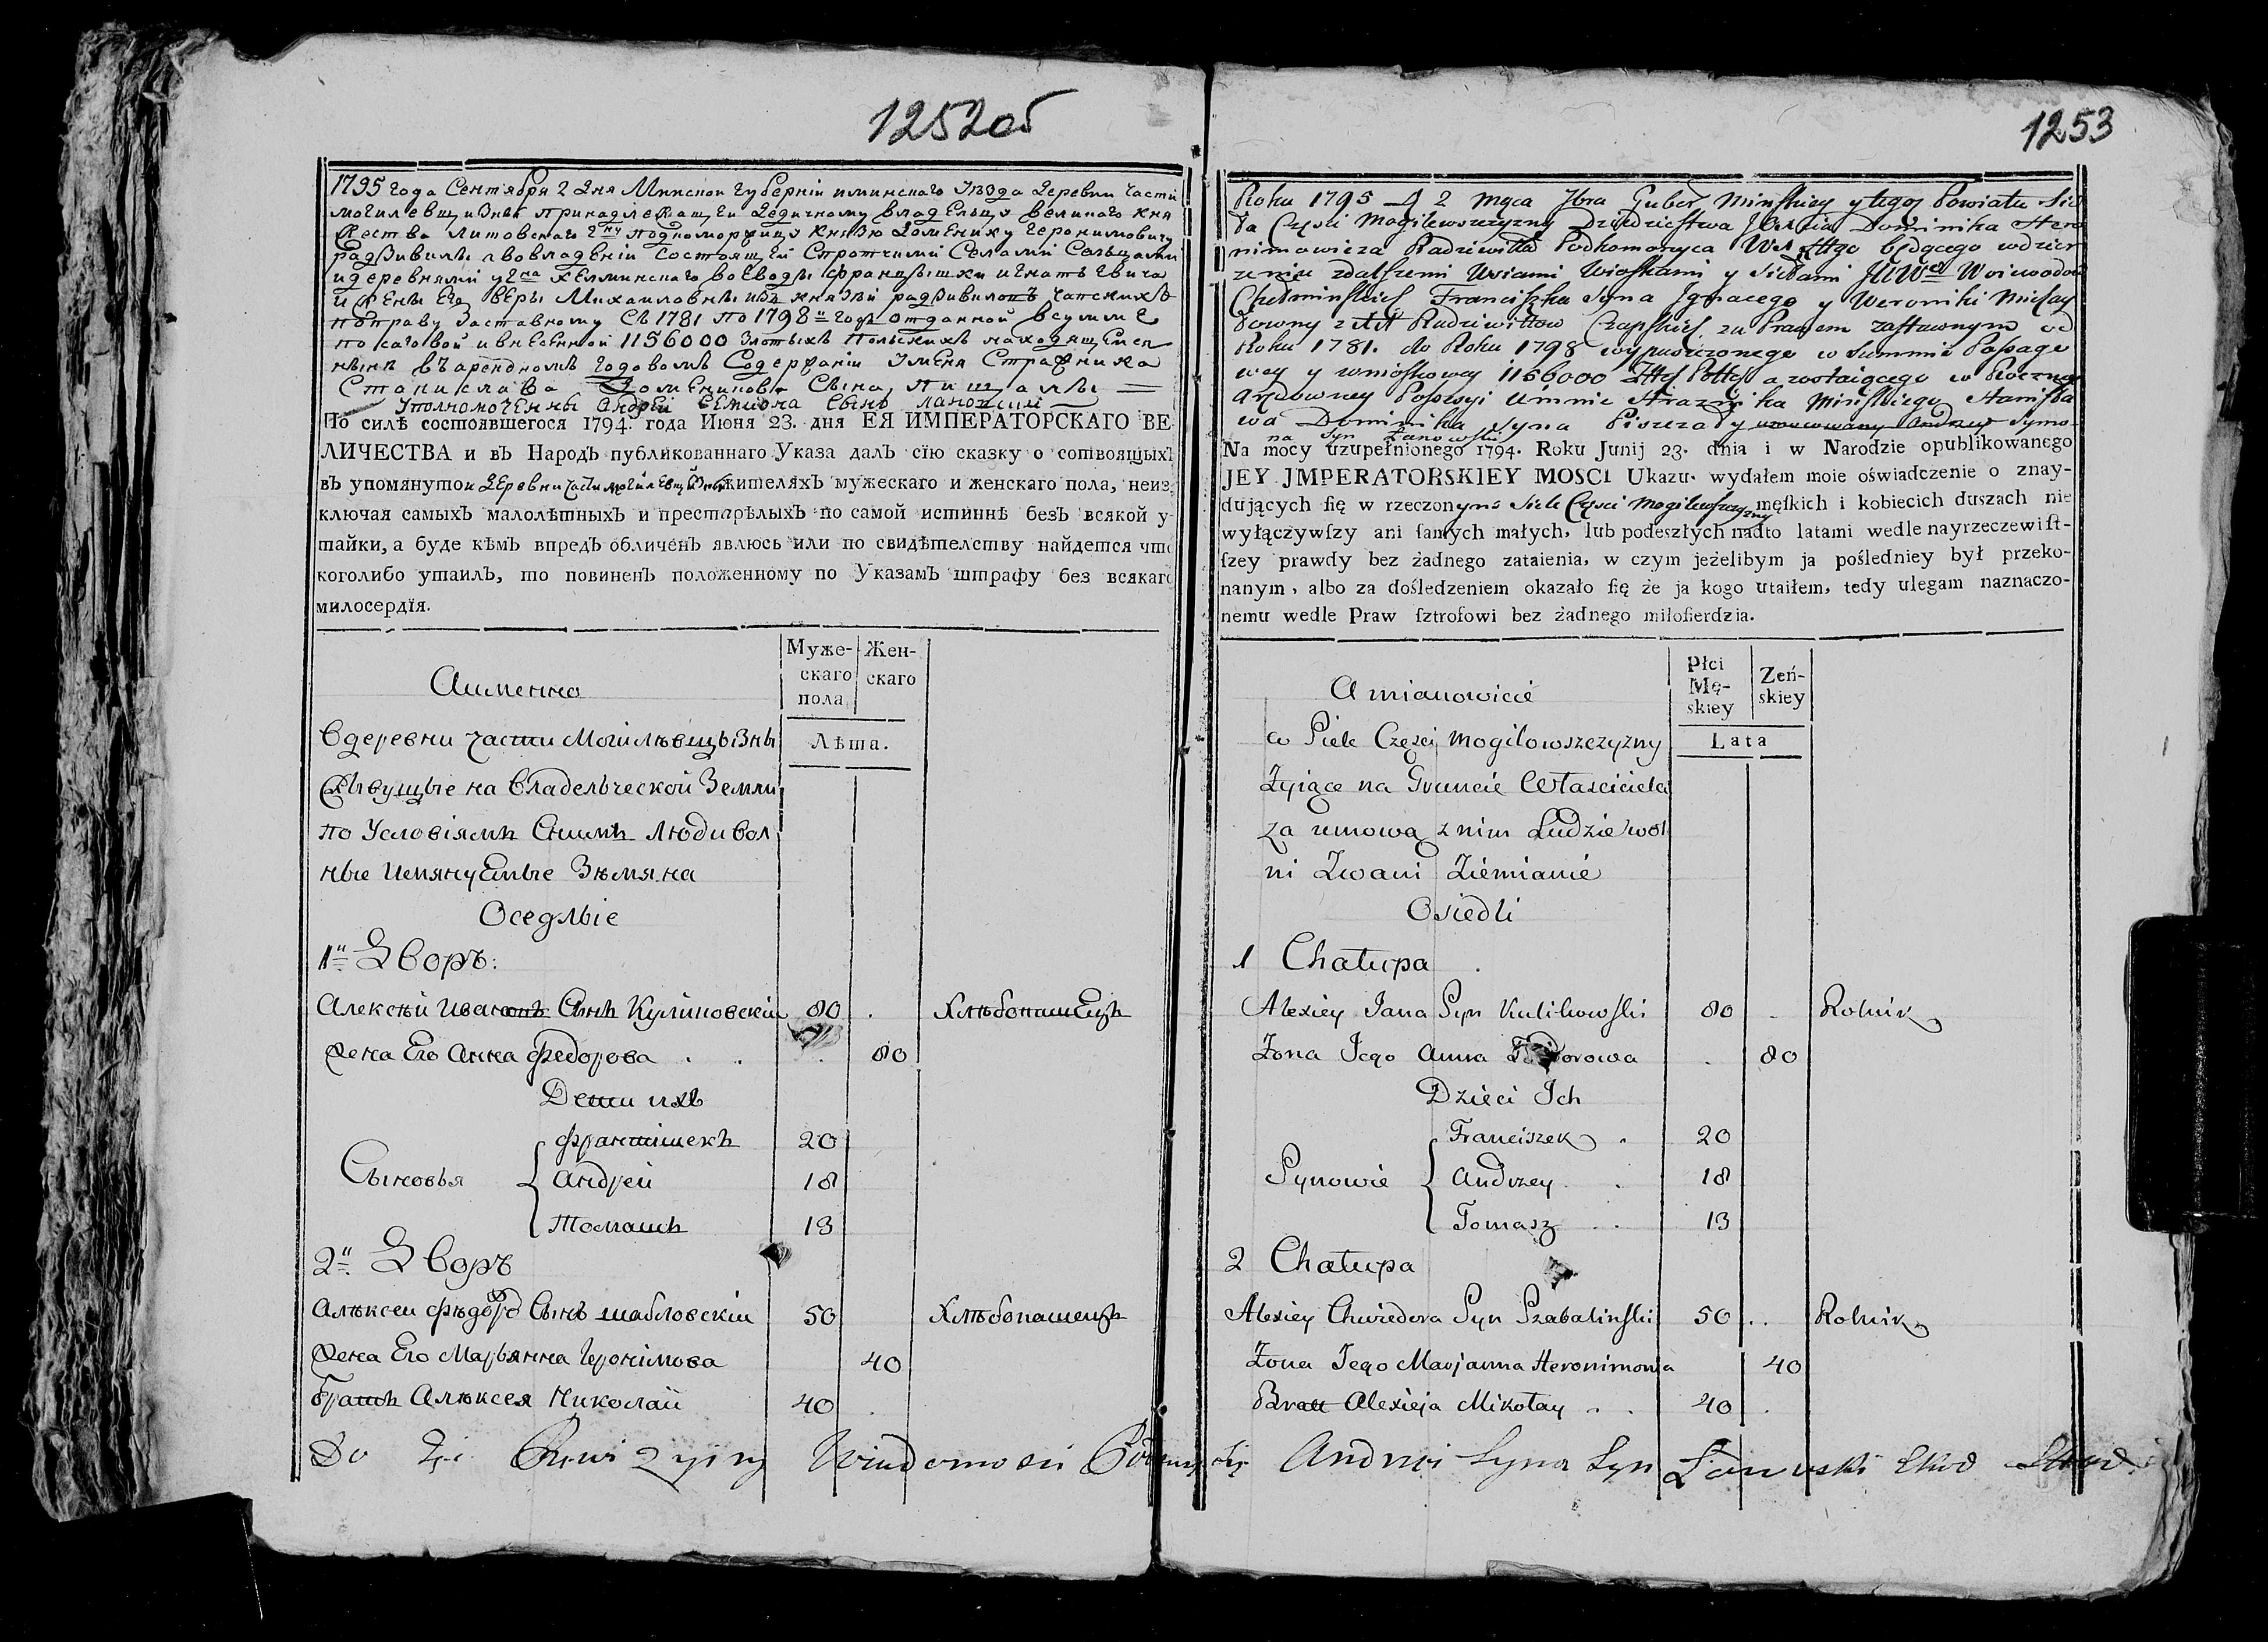 1252об
1795 года Сентября 2 дня Минской губернiи иминскаго Уѣзда деревни части
могилевщизны принадлежащей дедичному владельцу великаго кня
жества литовскаго подкоморжицу князю доменику геронимовичу
радзивилъ а вовладенiи состоящей спротчими селами сельцами
идеревнями у хелминскаго воеводы францышки игнатьевича
и жены его веры михаиловны изъ князей радзивиловъ чапскихъ
поправу заставному съ 1781 по 1798 годъ отданной всумме
ивнесенной 1156000 злотыхъ польскихъ находящейся
нынѣ въ арендномъ годовомъ содержанiи имена стражника
станислава доменикова сына пищаллы
Уполномоченны андрей семиона сынъ лановски
По силѣ состоявшегося 1794. года Июня 23. дня ЕЯ ИМПЕРАТОРСКАГО ВЕ
ЛИЧЕСТВА и въ Народъ публикованнаго Указа далъ сїю сказку о состоящыхъ
въ упомянутои деревни части могилевщизны жителяхъ мужескаго и женскаго пола, неиз
ключая самыхъ малолѣтныхъ и престарѣлыхъ по самой истиннѣ безъ всякой у
тайки, а буде кѣмъ впредъ обличенъ явлюсь или по свидѣтелству найдется что
коголибо утаилъ, то повиненъ положенному по Указамъ штрафу без всякаго
милосердїя.
Муже-
скаго
пола
Жен-
скаго
Аименно
Лѣта.
Вдеревни части Могилѣвщызны
Жывущые на Владельческой Земли
по Условіямъ Снимъ Люди вол
ные Имянуемые Зѣмяна
Оседлые
1й Дворъ:
Алексѣй Ивановъ Сынъ Куликовскiй 80 . Хлѣбопашецъ
Жена Его Анна Федорова . . . 80
Дети ихъ
Сыновья { Франтишекъ 20
Андрей 18
Томашъ 13
2й Дворъ
Алѣксеи Фѣдора Сынъ шабловскiи 50 Хлѣбопашецъ
Жена Его Марьянна Геронiмова 40
братъ Алѣксея Николай 40 .
Do Tej Rewizyiny Wiadomosci Podpisuję się Andrzej Syna Syn Łanowski
1253
Roku 1795 D 2 Mąca 7bra Guber Minskiey y tegoż Powiatu Sio
ła Częsci Mogilewszczyzny Dziedzictwa Xcia Dominika Hero
nimowicza Radziwiłła Podkomorzyca W X Ltgo będącego wdzier
zeniu zdalszemi Wsiami Wioskami y Siołami JWWch Woiewodow
Chełminskich Franciszka Syna Ignacego y Weroniki Michay
łowny z XX Radziwiłłow Czapskich za Prawem zastawnym od
Roku 1781. do Roku 1798 wypuszczonego w Summie Possagо
wey y wnioskowey 1156000 Złłch Polłch a zostaiącego w Roczney
Arędowney Possesyi Uminie Strażnika Minskiego Stanisła
wa Dominika Syna Piszczały umocowany Andrzey Symo
na Syn Łanowski
Na mocy uzupełnionego 1794. Roku Junij 23. dnia i w Narodzie opublikowanego
JEY JMPERATORSKIEY MOSCI Ukazu. wydałem moie oświadczenie o znay-
dujących ſię w rzeczonym Siele Częsci Mogilewszczyzny męſkich i kobiecich duszach nie
wyłączywſzy ani ſamych małych, lub podeszłych nadto latami wedle nayrzeczewiſt-
ſzey prawdy bez żadnego zataienia, w czym jeżelibym ja poſledniey był przeko-
nanym, albo za dośledzeniem okazało ſię że ja kogo utaiłem, tedy ulegam naznaczo-
nemu wedle Praw ſztrofowi bez żadnego miłoſierdzia.
Płci
Mę-
skiey
Zeń-
skiey
A mianowicie
Lata
w Siele Częsci Mogilowszczyzny
Żyiące na Gruncie Własciciela
za umową z nim Ludzie wol
ni Zwani Ziemianie
Osiedli
1 Chałupa
Alexiey Jana Syn Kulikowſki 80 . Rolnik
Zona Jego Anna Fedorowa . 80
Dzieci Ich
Synowie { Franciszek . 20
Andrzey . 18
Tomasz . . 13
2 Chałupa
Alexiey Chwiedora Syn Szabalinſki 50 . . Rolnik
Zona Jego Marjanna Heronimowa 40
Bratt Alexieja Mikołay . . 40 .